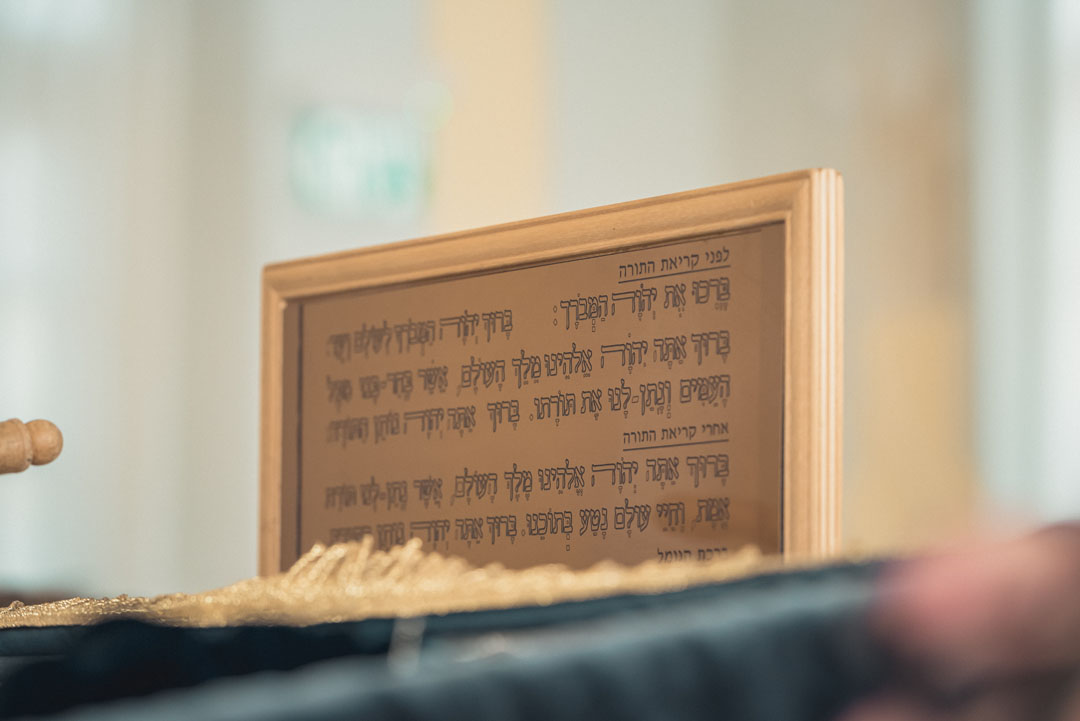 לפני קריאת התורה
בָּרְכוּ אֶת יְהֹוָה הַמְּבֹרָךְ: בָּרוּךְ יְהֹוָה הַמְּבֹרָךְ לְעוֹלָם וָעֶד:
בָּרוּךְ אַתָּה יְהֹוָה אֱלֹהֵינוּ מֶלֶךְ הָעוֹלָם, אֲשֶׁר בָּחַר-בָּנוּ מִכָּל
הָעַמִּים וְנָתַן-לָנוּ אֶת תּוֹרָתוֹ. בָּרוּךְ אַתָּה יְהֹוָה נוֹתֵן הַתּוֹרָה:
אחרי קריאת התורה
בָּרוּךְ אַתָּה יְהֹוָה אֱלֹהֵינוּ מֶלֶךְ הָעוֹלָם, אֲשֶׁר נָתַן-לָנוּ תּוֹרַת
אֱמֶת, וְחַיֵּי עוֹלָם נָטַע בְּתוֹכֵנוּ. בָּרוּךְ אַתָּה יְהֹוָה נוֹתֵן
ברכת הגומל